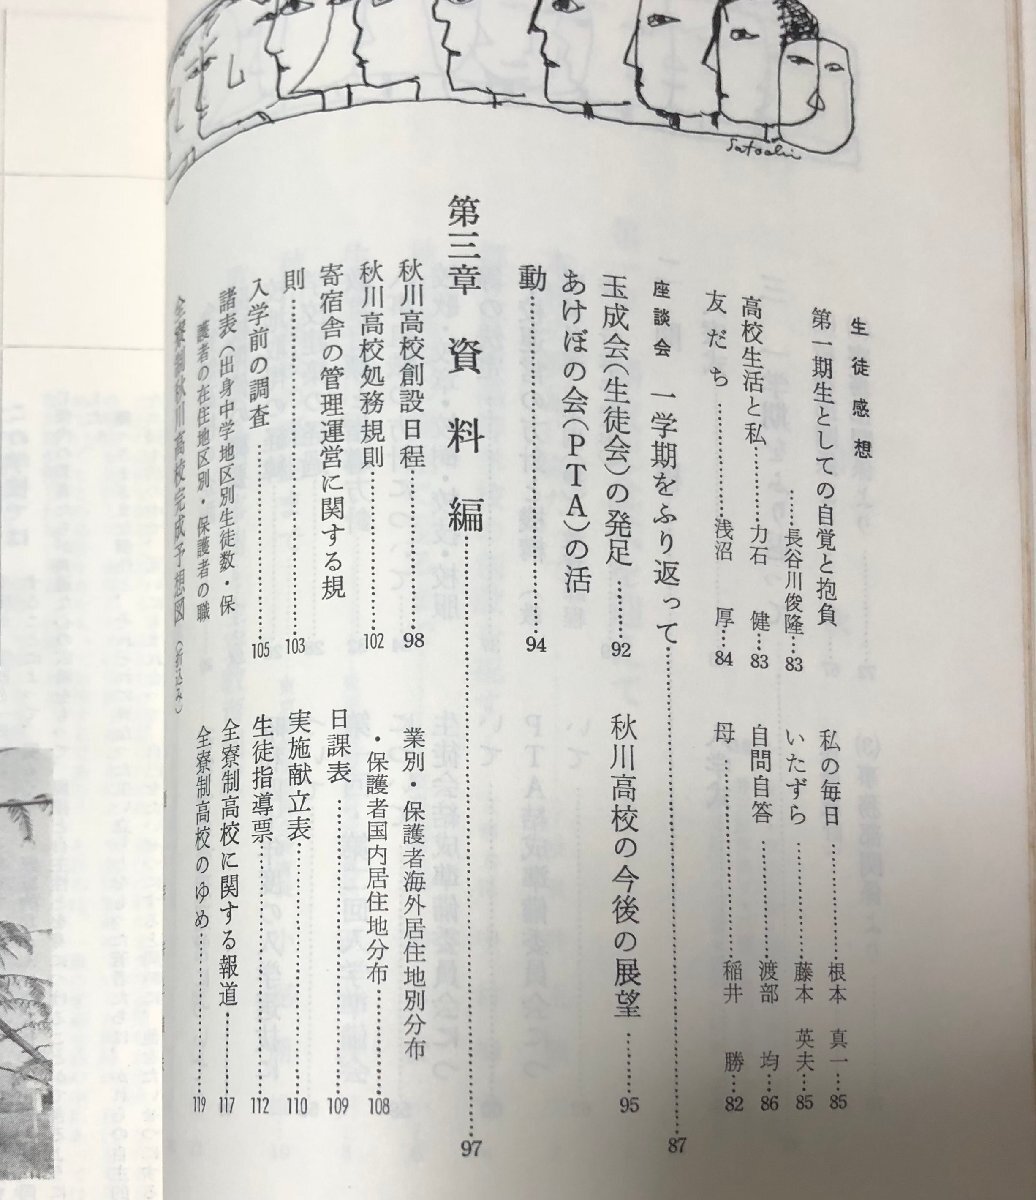 Satoshi
生徒感想
第一期生としての自覚と抱負
……長谷川俊隆…83
高校生活と私……力石 健…83
友だち……浅沼 厚…84
私の毎日……根本 真一…85
いたずら……藤本 英夫…85
自問自答……渡部 均…86
母……稲井 勝…82
座談会 一学期をふり返って……87
玉成会(生徒会)の発足……92
あけぼの会(PTA)の活
動……94
秋川高校の今後の展望……95
第三章 資料編……97
秋川高校創設日程……98
秋川高校処務規則……102
寄宿舎の管理運営に関する規
則……103
入学前の調査……105
諸表(出身中学地区別生徒数・保
護者の在住地区別・保護者の職
業別・保護者海外居住地別分布
・保護者国内居住地分布……108
日課表……109
実施献立表……110
生徒指導票……112
全寮制高校に関する報道……117
全寮制高校のゆめ……119
全寮制秋川高校完成予想図(折込み)